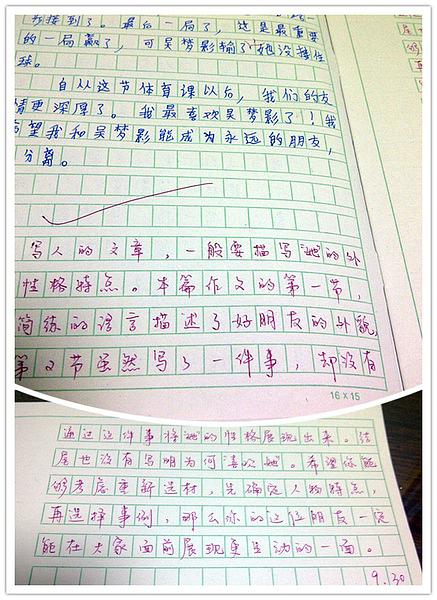 我接到了。最后一局了，这是最重要
的一局赢了，可吴梦影输了她没接住
球。
自从这节体育课以后，我们的友
情更深厚了。我最喜欢吴梦影了！我
希望我和吴梦影能成为永远的朋友，
分离。
写人的文章，一般要描写"她"的外
性格特点。本篇作文的第一节，
简练的语言描述了好朋友的外貌，
第2节虽然写了一件事，却没有
16×15
通过这件事将"她"的性格展现出来。结
尾也没有写明为何喜欢她。希望你能
够考虑重新选材，先确定人物特点，
再选择事例，那么你的这位朋友一定
能在大家面前展现更生动的一面。
9.30